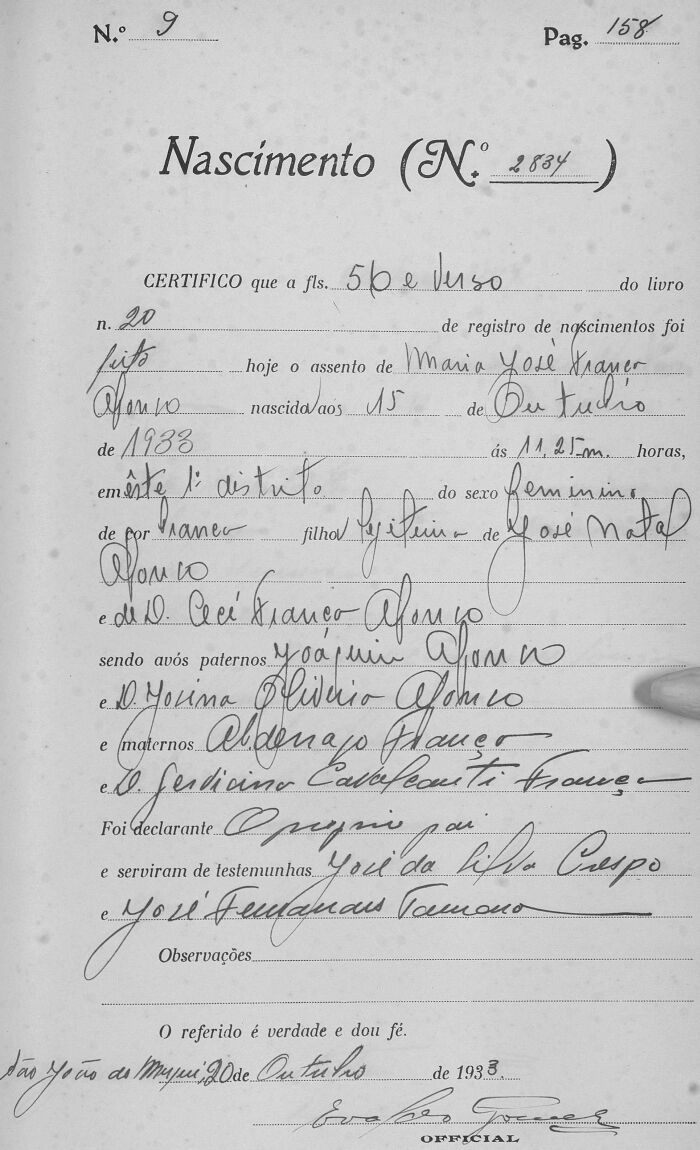 N.º 9 Pag. 158
Nascimento (N.º 2834)
CERTIFICO que a fls. 56 e verso do livro
n. 20 de registro de nascimentos foi
feito hoje o assento de Maria José França
Afonso nascida aos 15 de Outubro
de 1933 ás 11,25 m. horas,
em êste 1º distrito do sexo feminino
de cor branca filha legitima de José Natal
Afonso
e de D. Ceci França Afonso
sendo avós paternos Joáquim Afonso
e D. Jovina Oliveira Afonso
e maternos Abdenago França
e D. Cavalcanti França
Foi declarante O proprio pai
e serviram de testemunhas José da Silva Crespo
e José Fernandes
Observações
O referido é verdade e dou fé.
São João do Muqui, 20 de Outubro de 1933.
Gomes
OFFICIAL